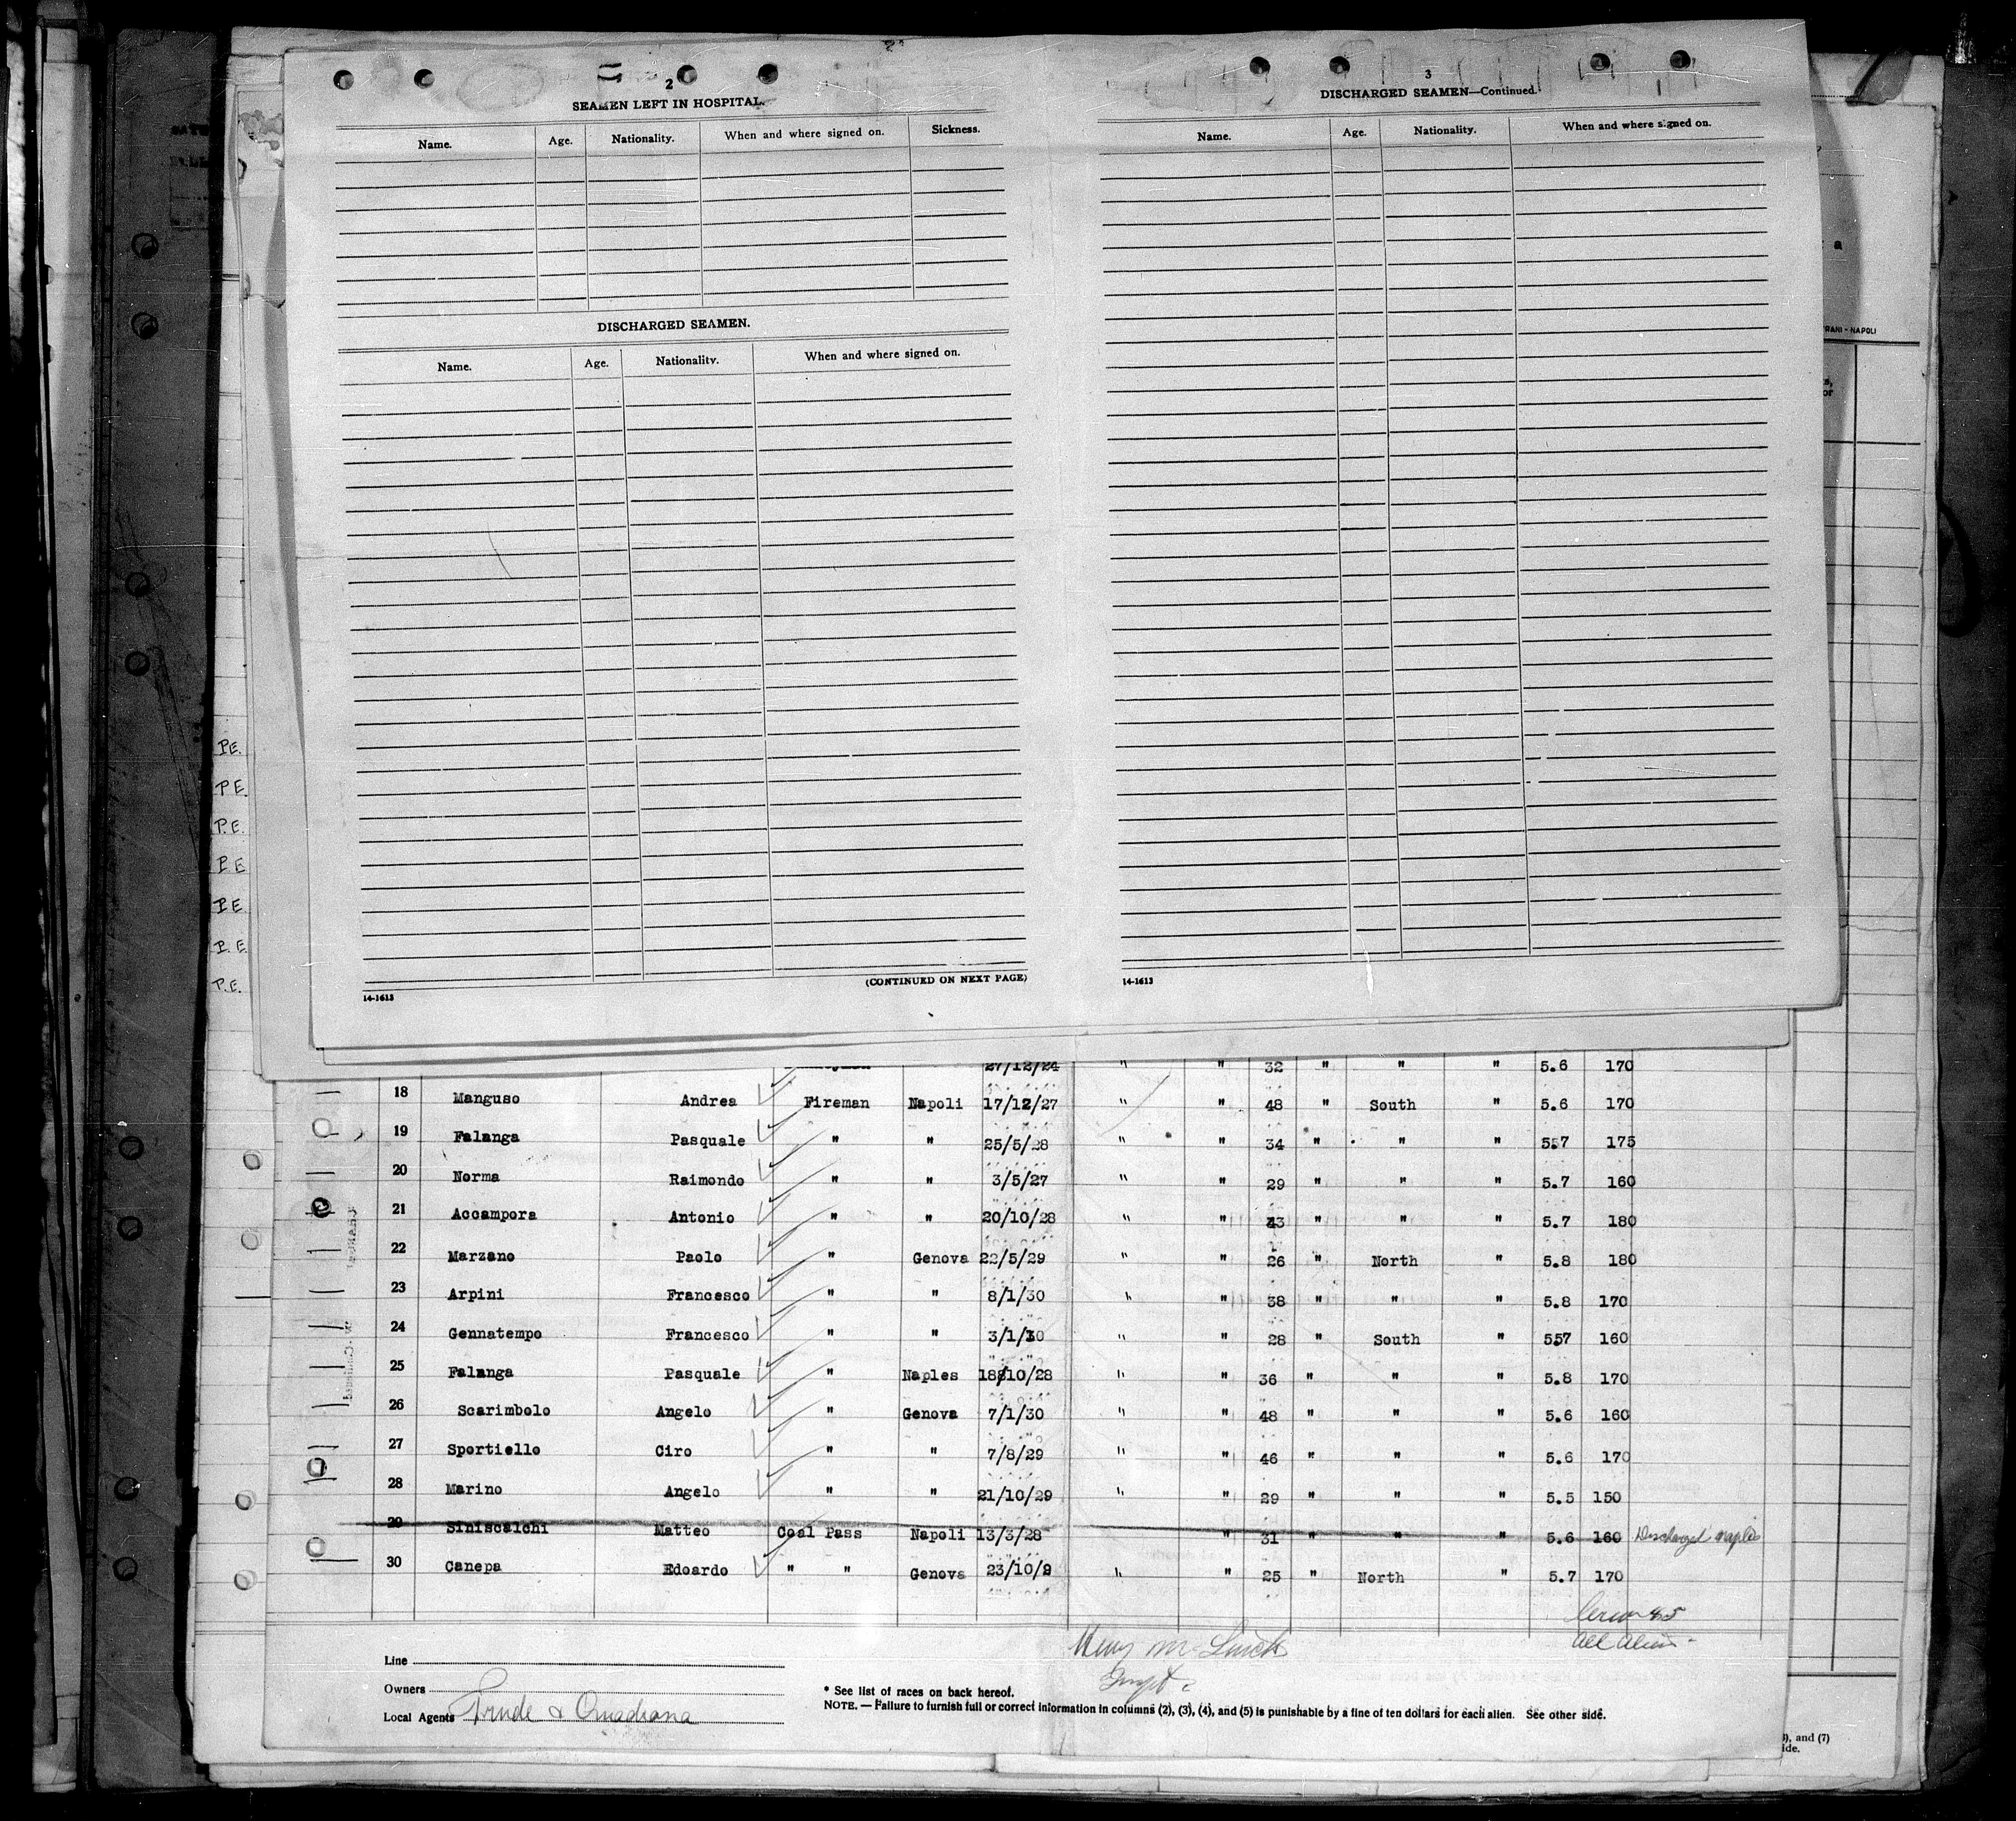 2
SEAMEN LEFT IN HOSPITAL.
Name. Age. Nationality. When and where signed on. Sickness.
DISCHARGED SEAMEN.
Name. Age. Nationality. When and where signed on.
(CONTINUED ON NEXT PAGE)
14-1613
3
DISCHARGED SEAMEN—Continued.
Name. Age. Nationality. When and where signed on.
14-1613
a
RANI - NAPOLI
s,
or
PE.
P E.
P.E.
P E
P E
P. E
P.E.
27/12/24 " " 32 " " " 5.6 170
18 Manguso Andrea Fireman Napoli 17/12/27 " " 48 " South " 5.6 170
19 Falanga Pasquale " " 25/5/28 " " 34 " " " 557 175
20 Norma Raimondo " " 3/5/27 " " 29 " " " 5.7 160
21 Accampora Antonio " " 20/10/28 " " 43 " " " 5.7 180
22 Marzano Paolo " Genova 22/5/29 " " 26 " North " 5.8 180
23 Arpini Francesco " " 8/1/30 " " 38 " " " 5.8 170
24 Gennatempo Francesco " " 3/1/30 " " 28 " South " 557 160
25 Falanga Pasquale " Naples 18/10/28 " " 36 " " " 5.8 170
26 Scarimbolo Angelo " Genova 7/1/30 " " 48 " " " 5.6 160
27 Sportiello Ciro " " 7/8/29 " " 46 " " " 5.6 170
28 Marino Angelo " " 21/10/29 " " 29 " " " 5.5 150
29 Siniscalchi Matteo Coal Pass Napoli 13/3/28 " 31 " " " 5.6 160 Discharged Naples
30 Canepa Edoardo " " Genova 23/10/9 " " 25 " North " 5.7 170
Crew 45
all aliens
Line
Owners
Local Agents
* See list of races on back hereof.
NOTE. — Failure to furnish full or correct information in columns (2), (3), (4), and (5) is punishable by a fine of ten dollars for each alien. See other side.
), and (7)
ide.